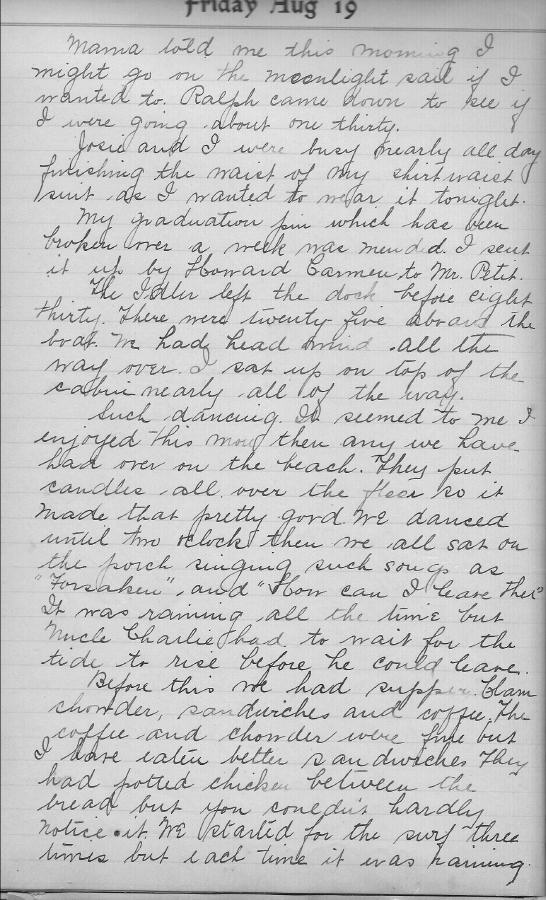 Friday Aug 19
Mama told me this morning I
might go on the moonlight sail if I
wanted to. Ralph came down to see if
I were going about one thirty.
Josie and I were busy nearly all day
finishing the waist of my shirt waist
suit as I wanted to wear it tonight.
My graduation pin which has been
broken over a week was mended. I sent
it up by Howard Carmen to Mr. Petit.
The Idler left the dock before eight
thirty. There were twenty five aboard the
boat. We had head wind all the
way over. I sat up on top of the
cabin nearly all of the way.
Such dancing. It seemed to me I
enjoyed this more then any we have
had over on the beach. They put
candles all over the floor so it
made that pretty good. We danced
until two oclock then we all sat on
the porch singing such songs as
"Forsaken", and "How can I leave Thee"
It was raining all the time but
Uncle Charlie had to wait for the
tide to rise before he could leave.
Before this we had supper. Clam
chowder, sandwiches and coffee. The
coffee and chowder were fine but
I have eaten better sandwiches. They
had potted chicken between the
bread but you couldn't hardly
notice it. We started for the surf three
times but each time it was raining.